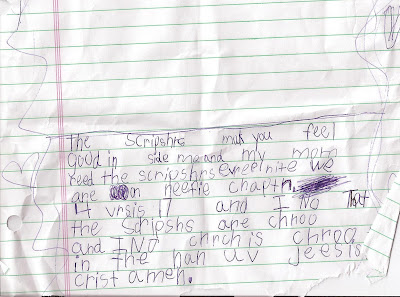 The scripshrs mak you feel
Good in side me and my mom
reed the scripshrs evreenite we
are on neefie chaptr
14 vrsis 17 and I No That
the scripshs are chroo
and I No chrch is chroo
in The nan uv jeesis
crist amen.